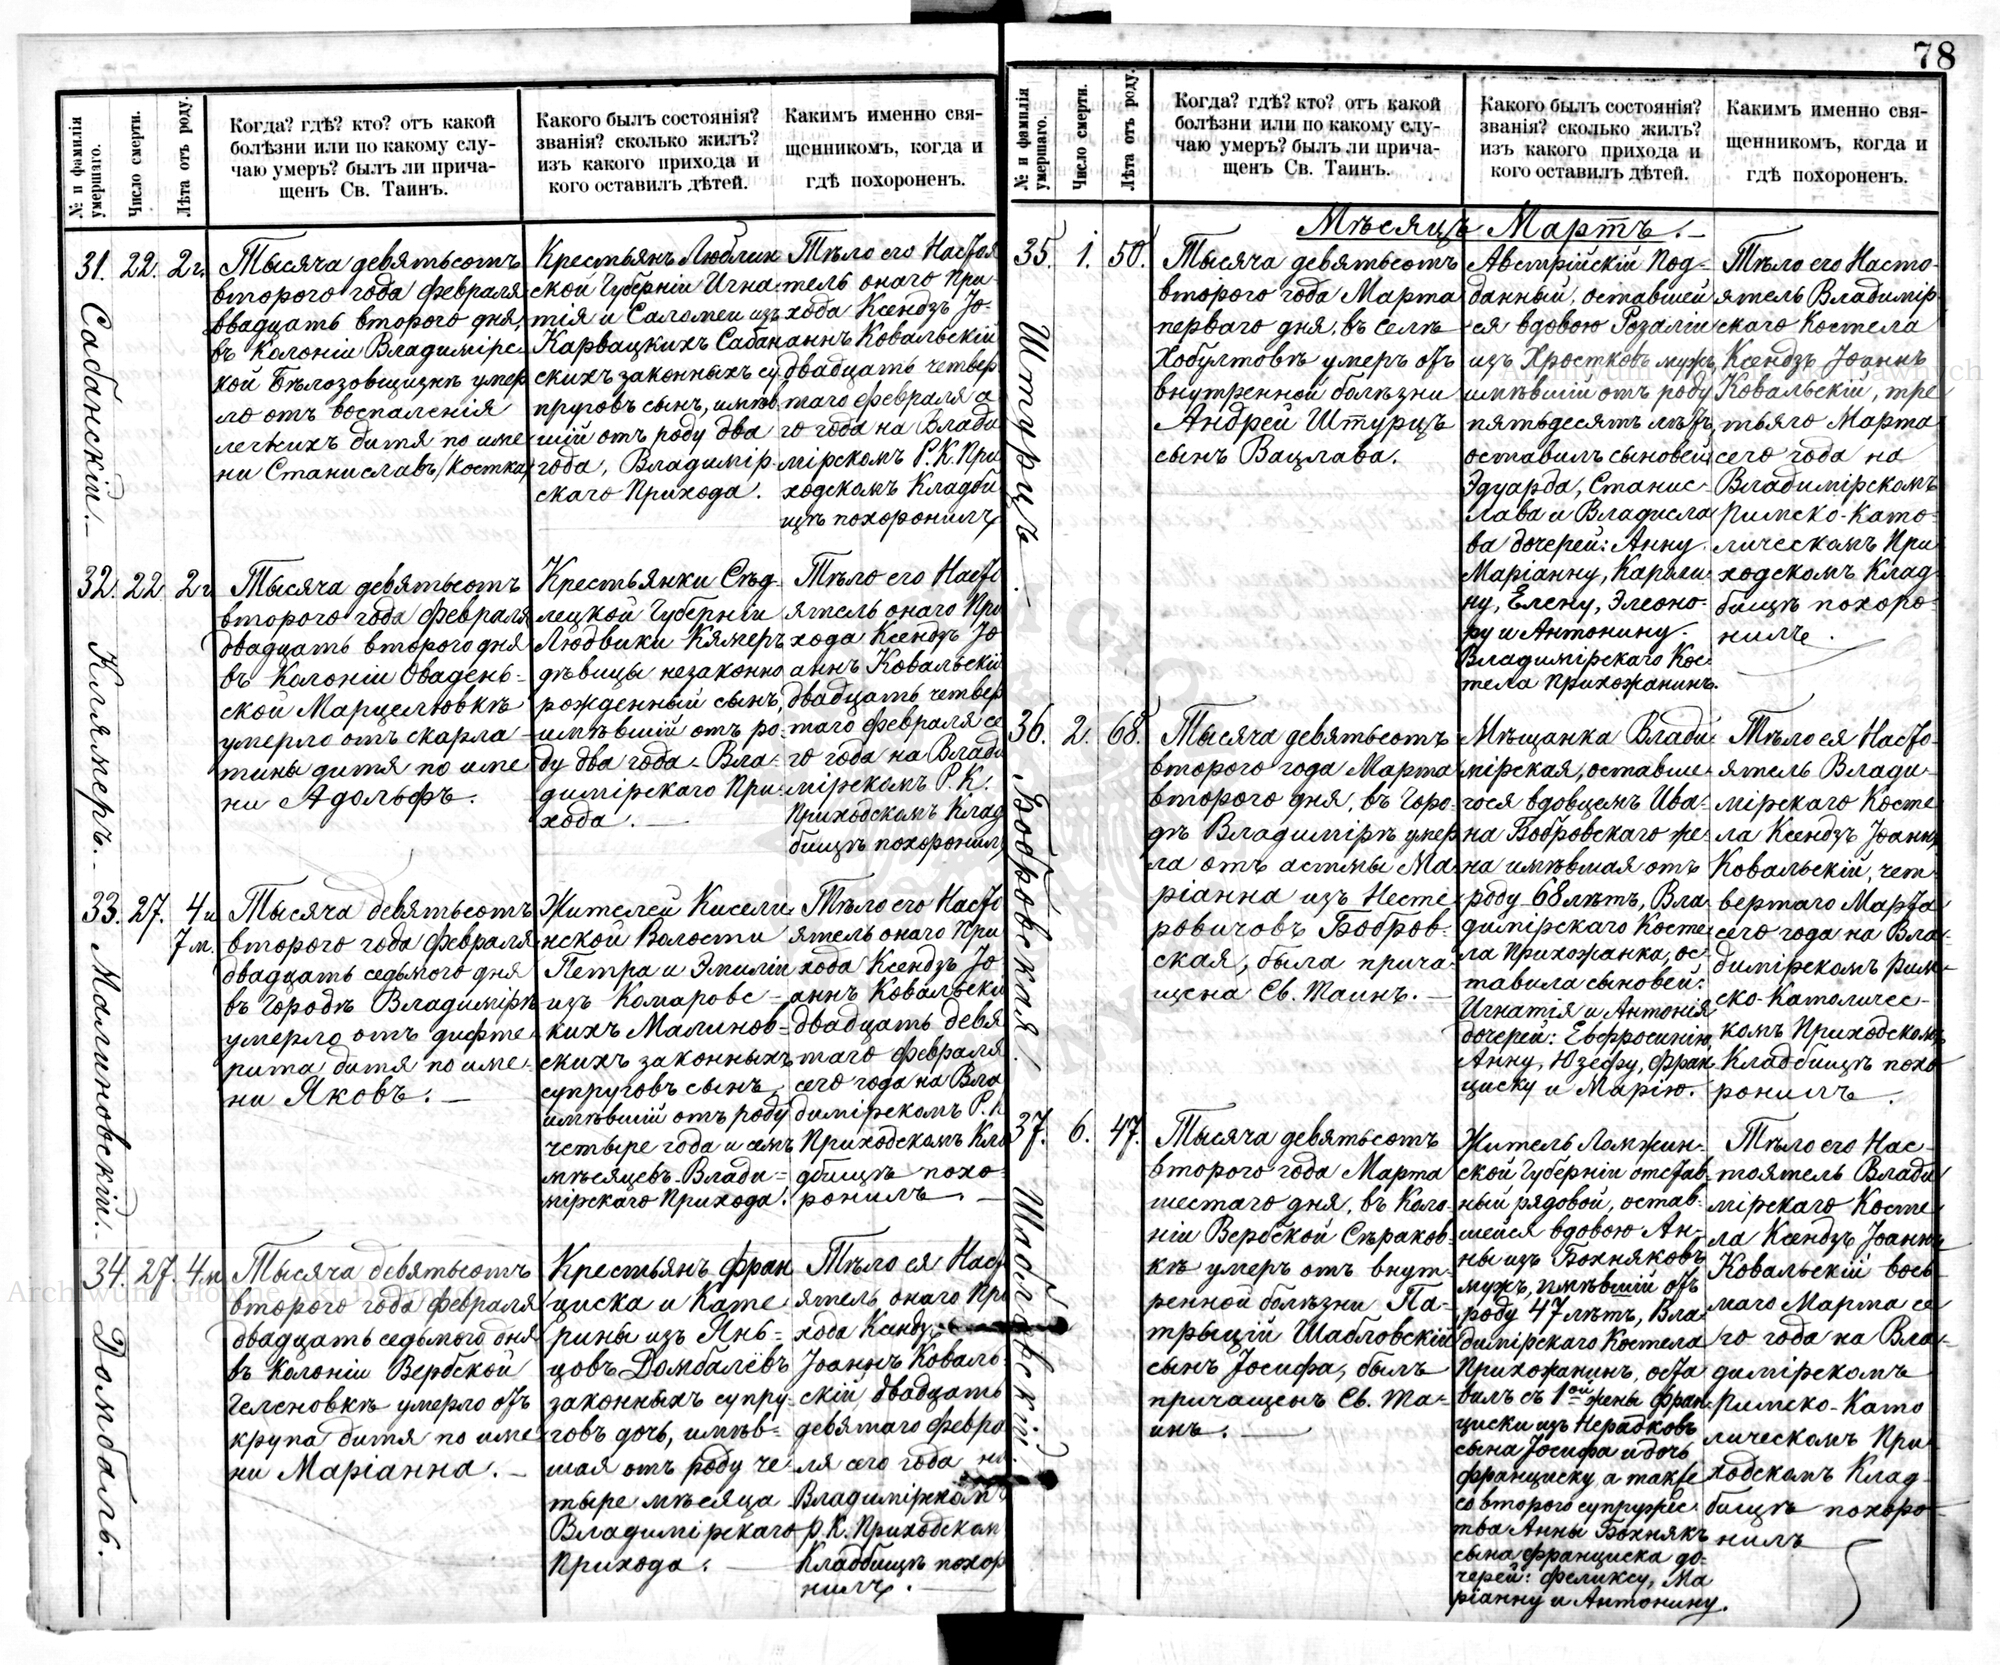 78
№ и фамилія
умершаго.
Число смерти.
Лѣта отъ роду.
Когда? гдѣ? кто? отъ какой
болѣзни или по какому слу-
чаю умеръ? былъ ли прича-
щенъ Св. Таинъ.
Какого былъ состоянія?
званія? сколько жилъ?
изъ какого прихода и
кого оставилъ дѣтей.
Какимъ именно свя-
щенникомъ, когда и
гдѣ похороненъ.
31. Сабанскій.
22.
2 г.
Тысяча девятьсотъ
второго года февраля
двадцать второго дня,
въ Колоніи Владимірс-
кой Бѣлозовщизнѣ умер
ло отъ воспаленія
легкихъ дитя по име
ни Станиславъ /Костка/
Крестьянъ Люблин
ской Губерніи Игна
тія и Саломеи изъ
Карвацкихъ Сабан
скихъ законныхъ су
пруговъ сынъ, имѣв
шій отъ роду два
года, Владимір-
скаго Прихода.
Тѣло его Настоя
тель онаго При-
хода Ксендзъ Іо-
аннъ Ковальскій
двадцать четвер
таго февраля с
го года на Влади
мірскомъ Р. К. При
ходскомъ Кладби
щѣ похоронилъ
32. Клямеръ.
22
2 г
Тысяча девятьсотъ
второго года февраля
двадцать второго дня
въ Колоніи Овадень-
ской Марцелювкѣ
умерло отъ скарла-
тины дитя по име
ни Адольфъ.
Крестьянки Сѣд-
лецкой Губерніи
Людвики Клямеръ
дѣвицы незаконно
рожденный сынъ,
имѣвшій отъ ро-
ду два года. Вла-
димірскаго При-
хода.
Тѣло его Насто
ятель онаго При
хода Ксендзъ Іо
аннъ Ковальскій
двадцать четвер
таго февраля се
го года на Влади
мірскомъ Р. К.
Приходскомъ Клад
бищѣ похоронил
33. Малиновскій.
27.
4 и
7 м.
Тысяча девятьсотъ
второго года февраля
двадцать седьмого дня
въ Городѣ Владимірѣ
умерло отъ дифте-
рита дитя по име-
ни Яковъ.
Жителей Кисели-
нской Волости
Петра и Эмиліи
изъ Комаровс-
кихъ Малинов-
скихъ законныхъ
супруговъ сынъ,
имѣвшій отъ роду
четыре года и семь
мѣсяцевъ. Влади-
мірскаго Прихода.
Тѣло его Насто
ятель онаго При
хода Ксендзъ Іо
аннъ Ковальскій
двадцать девя
таго февраля
сего года на Вла
димірскомъ Р. К
Приходскомъ Кла
дбищѣ похо-
ронилъ.
34. Домбаль.
27.
4 м
Тысяча девятьсотъ
второго года февраля
двадцать седьмого дня
въ Колоніи Вербской
Геленовкѣ умерло отъ
крупа дитя по име
ни Маріанна.
Крестьянъ Фран
циска и Кате
рины изъ Янь-
цовъ Домбалёвъ
законныхъ супру-
говъ дочь, имѣв-
шая отъ роду че
тыре мѣсяца
Владимірскаго
Прихода.
Тѣло ея Наст
ятель онаго При
хода Ксендзъ
Іоаннъ Коваль-
скій, двадцать
девятаго февра
ля сего года на
Владимірском
Р. К. Приходском
Кладбищѣ похор
нилъ.
№ и фамилія
умершаго.
Число смерти.
Лѣта отъ роду.
Когда? гдѣ? кто? отъ какой
болѣзни или по какому слу-
чаю умеръ? былъ ли прича-
щенъ Св. Таинъ.
Какого былъ состоянія?
званія? сколько жилъ?
изъ какого прихода и
кого оставилъ дѣтей.
Какимъ именно свя-
щенникомъ, когда и
гдѣ похороненъ.
Мѣсяцъ Мартъ.
35. Штурцъ.
1.
50.
Тысяча девятьсотъ
второго года Марта
перваго дня, въ селѣ
Хобултовѣ умеръ отъ
внутренной болѣзни
Андрей Штурцъ
сынъ Вацлава.
Австрійскій Под-
данный, оставшей
ся вдовою Розаліи
изъ Хростковъ мужъ,
имѣвшій отъ роду
пятьдесятъ лѣтъ,
оставилъ сыновей
Эдуарда, Станис-
лава и Владисла
ва дочерей: Анну
Маріанну, Кароли-
ну, Елену, Элеоно-
ру и Антонину.
Владимірскаго Кос
тела Прихожанинъ.
Тѣло его Насто-
ятель Владимір
скаго Костела
Ксендзъ Іоаннъ
Ковальскій, тре
тьяго Марта
сего года на
Владимірскомъ
Римско-Като-
лическомъ При
ходскомъ Клад-
бищѣ похоро-
нилъ.
36. Бобровская.
2.
68.
Тысяча девятьсотъ
второго года Марта
второго дня, въ Горо-
дѣ Владимірѣ умер
ла отъ астмы Ма-
ріанна изъ Несте-
ровичовъ Бобров-
ская, была прича-
щена Св. Таинъ.
Мѣщанка Влади-
мірская, оставше-
гося вдовцемъ Ива-
на Бобровскаго же-
на имѣвшая отъ
роду 68 лѣтъ, Вла-
димірскаго Косте-
ла Прихожанка, ос-
тавила сыновей:
Игнатія и Антонія
дочерей: Евфросинію
Анну, Юзефу, Фран
циску и Марію.
Тѣло ея Насто-
ятель Влади-
мірскаго Косте
ла Ксендзъ Іоаннъ
Ковальскій, чет
вертаго Марта
сего года на Вла-
димірскомъ Рим-
ско-Католичес-
комъ Приходскомъ
Кладбищѣ похо
ронилъ.
37. Шабловскій
6.
47.
Тысяча девятьсотъ
второго года Марта
шестаго дня, въ Коло-
ніи Вербской Сѣраков-
кѣ умеръ отъ внут-
ренной болѣзни Па-
трыцій Шабловскій
сынъ Іосифа, былъ
причащенъ Св. Та-
инъ.
Житель Ломжин-
ской Губерніи отстав-
ный рядовой, остав-
шейся вдовою Ан-
ны изъ Бохняковъ
мужъ, имѣвшій отъ
роду 47 лѣтъ, Вла-
димірскаго Костела
Прихожанинъ, оста
вилъ съ 1ой жены Фран
циски изъ Нерадковъ
сына Іосифа и дочь
Франциску, а также
со второго супружес
тва Анны Бохнякъ
сына Франциска до-
черей: Феликсу, Ма
ріанну и Антонину.
Тѣло его Нас-
тоятель Влади
мірскаго Косте-
ла Ксендзъ Іоаннъ
Ковальскій вось-
маго Марта се
го года на Вла-
димірскомъ
Римско-Като
лическомъ При
ходскомъ Клад-
бищѣ похоро-
нилъ